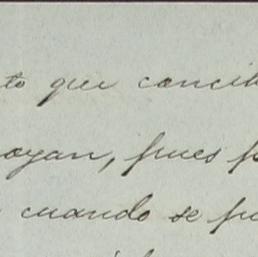 to que concib
oyan, pues p
cuando se pu